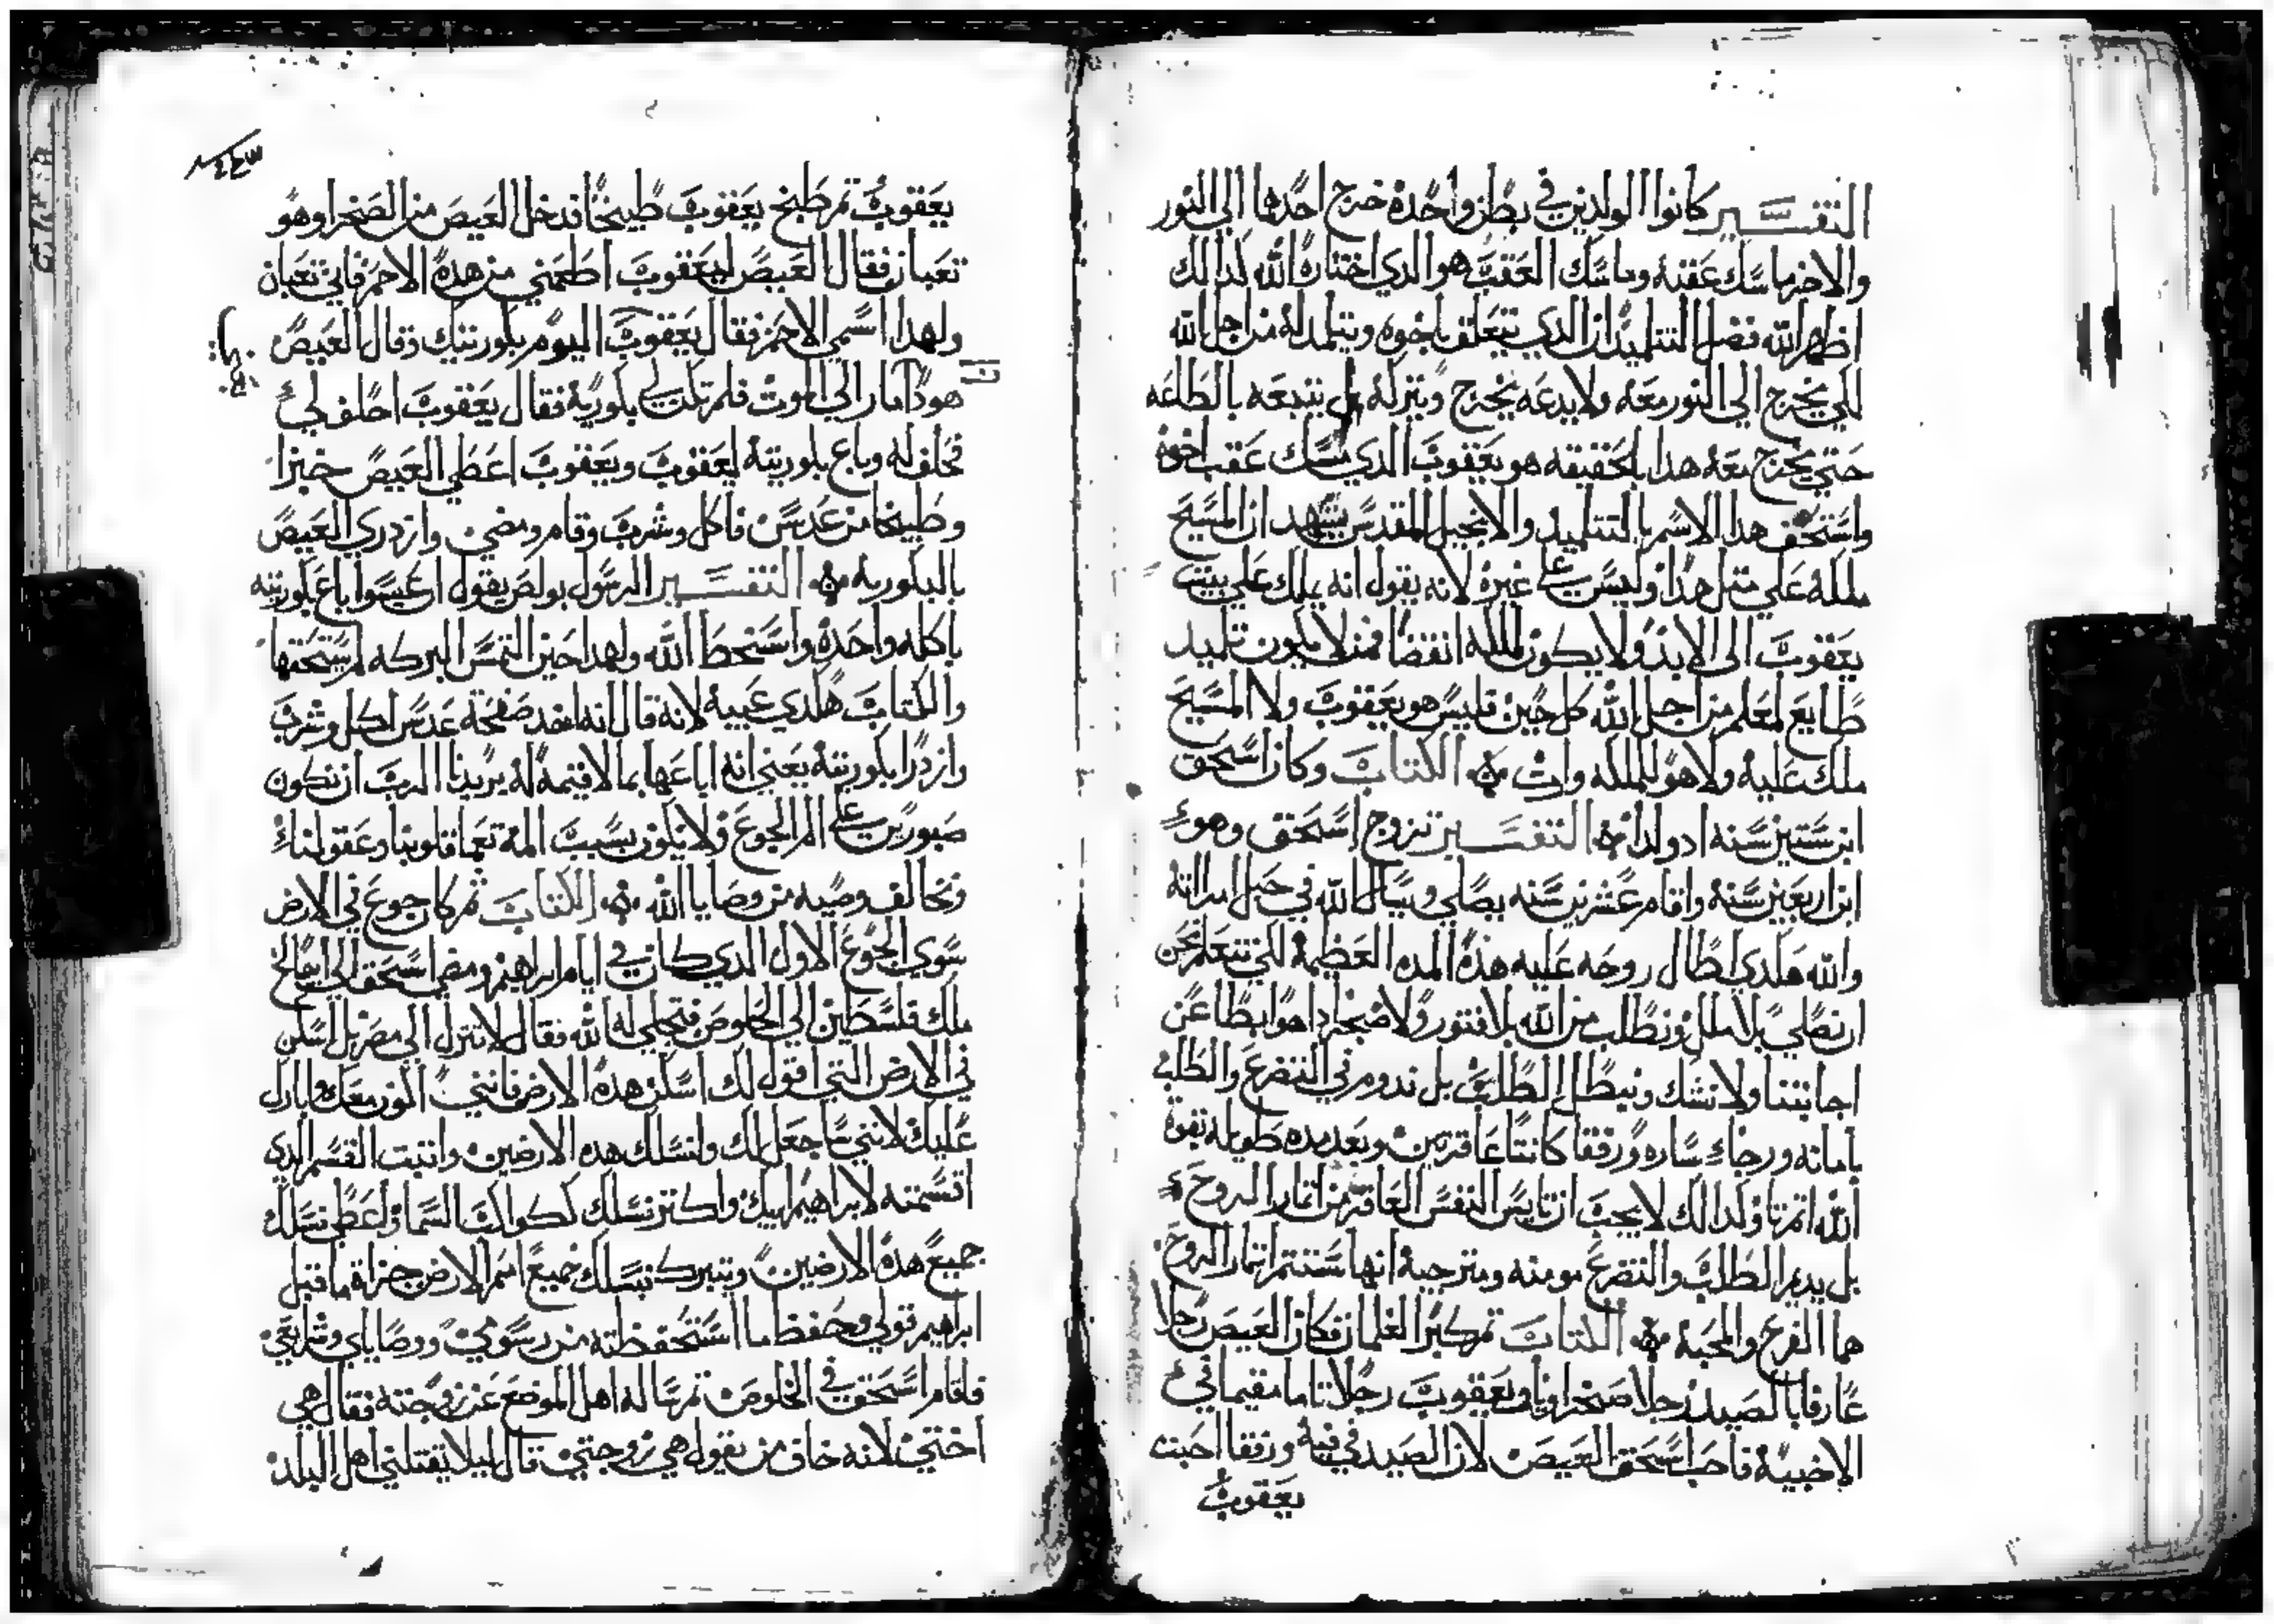 التفسير كانوا الولدين في بطن واحده خرج احدها الى النور
والاخر ماسك عقبه وماسك العقب هو الدي اختاره الله كدالك
اظهر الله فضل التتلميد ان الدي يتعلق باخوه ويتلمد له من اجل الله
للي يخرج الى النور معه ولا يدعه يخرج ويتركه بل يتبعه بالطاعه
حتي يخرج معه هدا بالحقيقه هو يعقوب الدي مسك عقب اخوه
واستحق هدا الاسم بالتتلميد والانجيل المقدس يشهد ان المسيح
ملكه علي متل هدا وليس علي غيره لانه يقول انه يملك علي بيت
يعقوب الى الابد ولا يكون لملكه انقضا فمن لا يكون تلميد
طايع لمعلم من اجل الله كل حين فليس هو يعقوب ولا المسيح
ملك عليه ولا هو لملكه وارت الكتاب وكان اسحق
ابن ستين سنه اد ولدا التفسير تزوج اسحق وهو
ابن اربعين سنه واقام عشرين سنه يصلي ويسال الله في حبل امراته
والله هكدي اطال روحه عليه هده المده العظيمه لكي نتعلم نحن
ان نصلي بلا ملل ونطلب من الله بلا فتور ولا ضجر ادا هو ابطا عن
اجابتنا ولا نشك ونبطل الطلب بل ندوم في التضرع والطلب
بامانه ورجاء ساره ورفقا كانتا عاقرتين وبعد مده طويله بقوة
الله اتمرتا وكدالك لا يجب ان تايس النفس العاقر من اتمار الروح
بل يديم الطلب والتضرع مومنه ومترجيه انها ستتمر اتمار الروح
هما الفرح والمحبه الكتاب تم كبرا الغلمان فكان العيص رجلا
عارفا بالصيد رجلا صحراويا ويعقوب رجلا تاما مقيما في
الاخبيه فاحب اسحق العيص لان الصيد في فيه ورفقا احبت
يعقوب
يعقوب تم طبخ يعقوب طبيخا فدخل العيص من الصحرا وهو
تعبان فقال العيص ليعقوب اطعمني من هده الاحمر فاني تعبان
ولهدا اسمي الاحمر فقال يعقوب اليوم بكوريتك فقال العيص
هودا مار الى الموت فلم تكن لي بكوريه فقال يعقوب احلف لي
فحلف له وباع بكوريته ليعقوب ويعقوب اعطي العيص خبزا
وطبيخا من عدس فاكل وشرب وقام ومضي وازدري العيص
بالبكوريه التفسير الرسول بولص يقول ان عيسوا باع بكوريته
باكله واحده واسخط الله ولهدا حين التمس البركه لم يستحقها
والكتاب هكدي عيبه لانه قال انه اخد صفحة عدس اكل وشرب
وازدرا بكوريته يعني انه اباعها بما لا قيمه له يريدنا الرب ان نكون
صبورين علي الم الجوع ولا يكون بسبب المه تعما قلوبنا وعقولنا
ونخالف وصيه من وصايا الله الكتاب تم كان جوع في الارض
سوي الجوع الاول الدي كان في ايام ابراهيم ومضي اسحق الى ابيمالخ
ملك فلسطين الى الخلوص فتجلي له الله فقال لا تنزل الى مصر بل اسكن
في الارض التي اقول لك اسكن هده الارض فانني اكون معك وابارك
عليك لانني ساجعل لك ولنسلك هده الارضين واتبت القسم الدي
اقسمته لابراهيم ابيك واكتر نسلك ككواكب السما واعطي نسلك
جميع هده الارضين ويتبرك بنسلك جميع امم الارض جزا ما قبل
ابراهيم قولي وحفظ ما استحفظته من رسومي ووصاياي وشرايعي
فاقام اسحق في الخلوص تم ساله اهل الموضع عن زوجته فقال هي
اختي لانه خاف من يقول هي زوجتي قال ليلا يقتلني اهل البلد